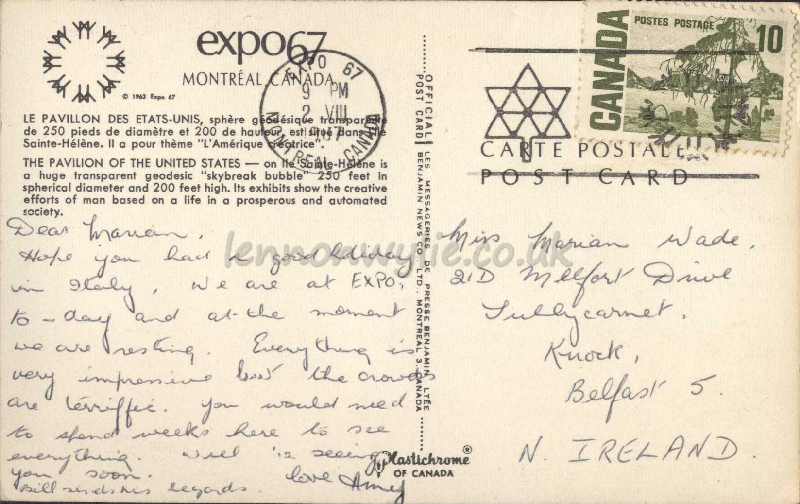 expo67
MONTRÉAL, CANADA
© 1963 Expo 67
LE PAVILLON DES ETATS-UNIS, sphère géodésique transparente
de 250 pieds de diamètre et 200 de hauteur est situé dans l'Ile
Sainte-Hélène. Il a pour thème "L'Amérique créatrice".
THE PAVILION OF THE UNITED STATES — on Ile Sainte-Hélène is
a huge transparent geodesic "skybreak bubble" 250 feet in
spherical diameter and 200 feet high. Its exhibits show the creative
efforts of man based on a life in a prosperous and automated
society.
Dear Marian,
Hope you had a good holiday
in Italy. We are at EXPO,
to-day and at the moment
we are resting. Everything is
very impressive but the crowds
are terriffic. You would need
to spend weeks here to see
everything. Will be seeing
you soon. love Amey
Bill sends his regards.
EXPO 67
9 PM
2 VIII
MONTREAL CANADA
OFFICIAL POST CARD
LES MESSAGERIES DE PRESSE BENJAMIN LTÉE
BENJAMIN NEWS CO. LTD., MONTREAL 3, CANADA
Plastichrome®
OF CANADA
POSTES POSTAGE
CANADA
10
CARTE POSTALE
POST CARD
Miss Marian Wade,
21D Melfort Drive
Tullycarnet,
Knock,
Belfast 5.
N. IRELAND.
lennoxwylie.co.uk